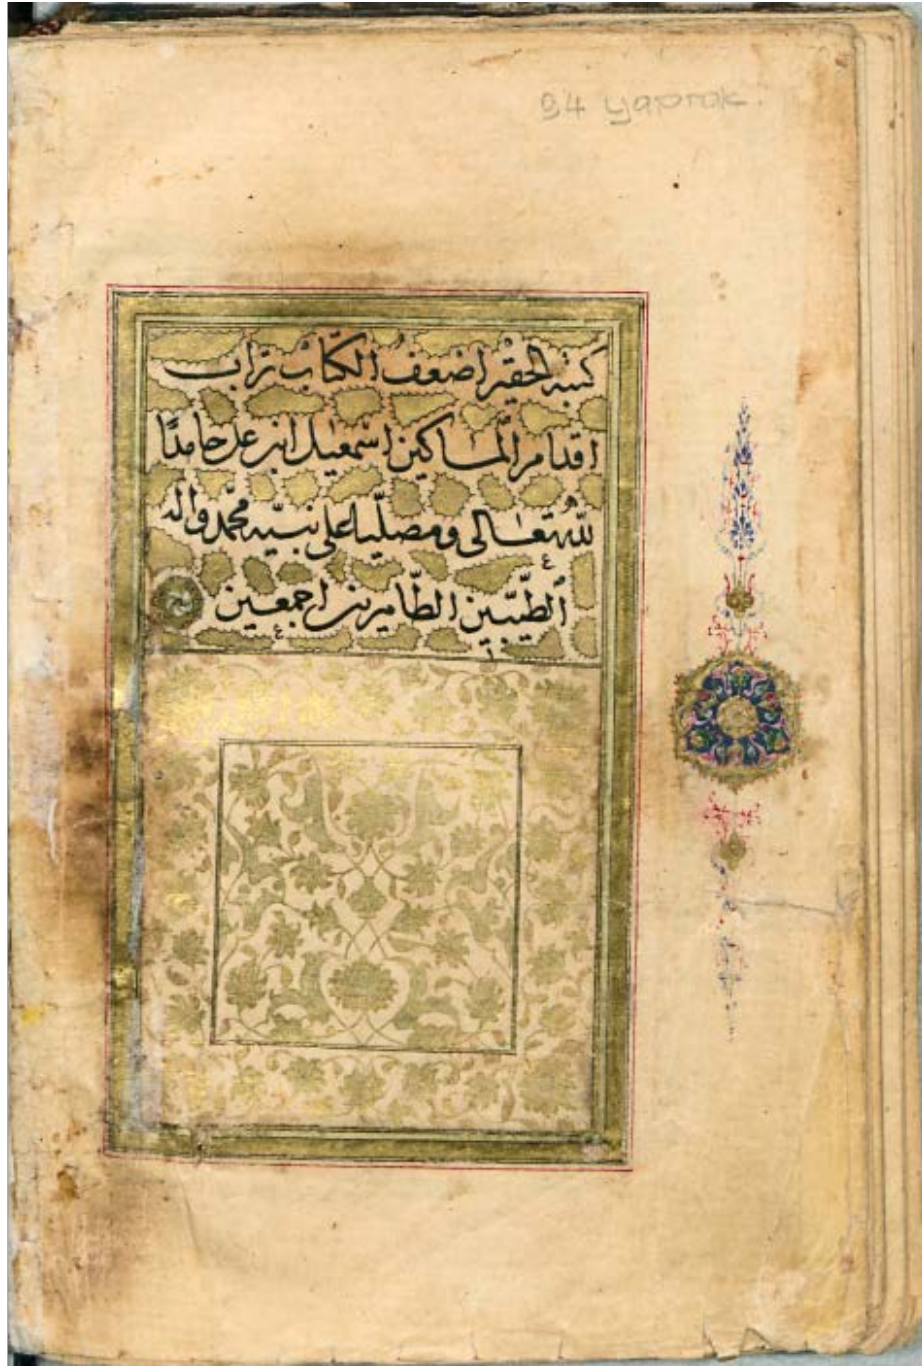 94 yaprak.
كتبه الحقير اضعفُ الكتّاب تراب
اقدام المساكين اسمعيل ابن على حامدًا
للّٰه تعالى ومصلّيا على نبيّه محمّد واله
الطيّبين الطّاهرين اجمعين